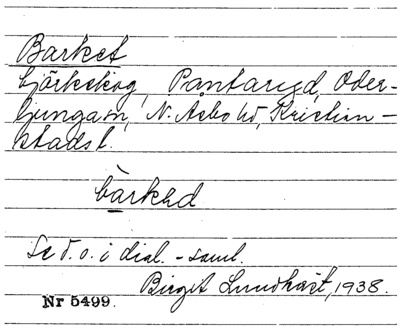 Barket
björkskog, Pantaryd, Oder-
ljungam, N. Åsbo hd, Kristian-
stads l.
barkəd
Se d. o. i dial.-saml.
Birget Lundkvist, 1938.
Nr 5499.